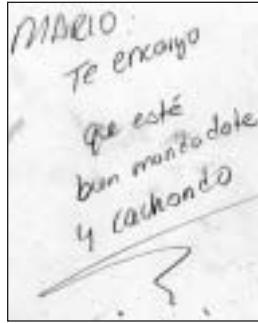 MARIO:
Te encargo
que esté
bien montadote
y cachondo